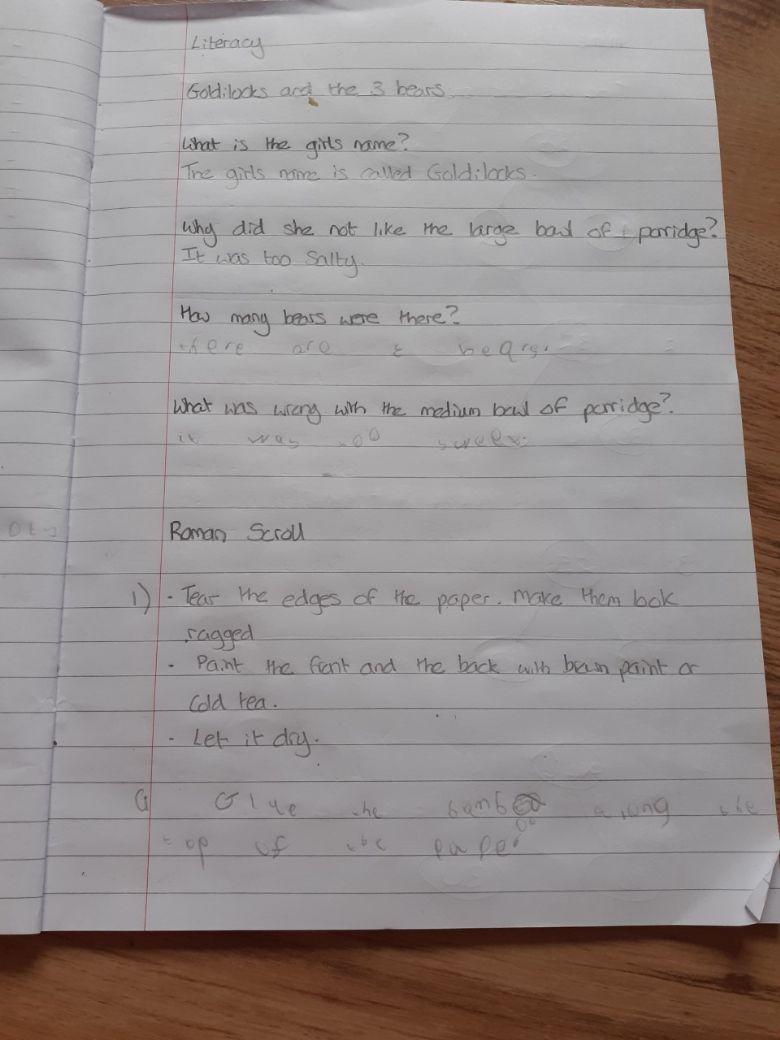 Literacy
Goldilocks and the 3 bears
What is the girls name?
The girls name is called Goldilocks.
Why did she not like the large bowl of porridge?
It was too Salty.
How many bears were there?
there are bears.
What was wrong with the medium bowl of porridge?
it was too sweet.
Roman Scroll
1) - Tear the edges of the paper. Make them look
ragged
- Paint the front and the back with brown paint or
cold tea.
- Let it dry.
G Glue the bamboo along the
top of the paper